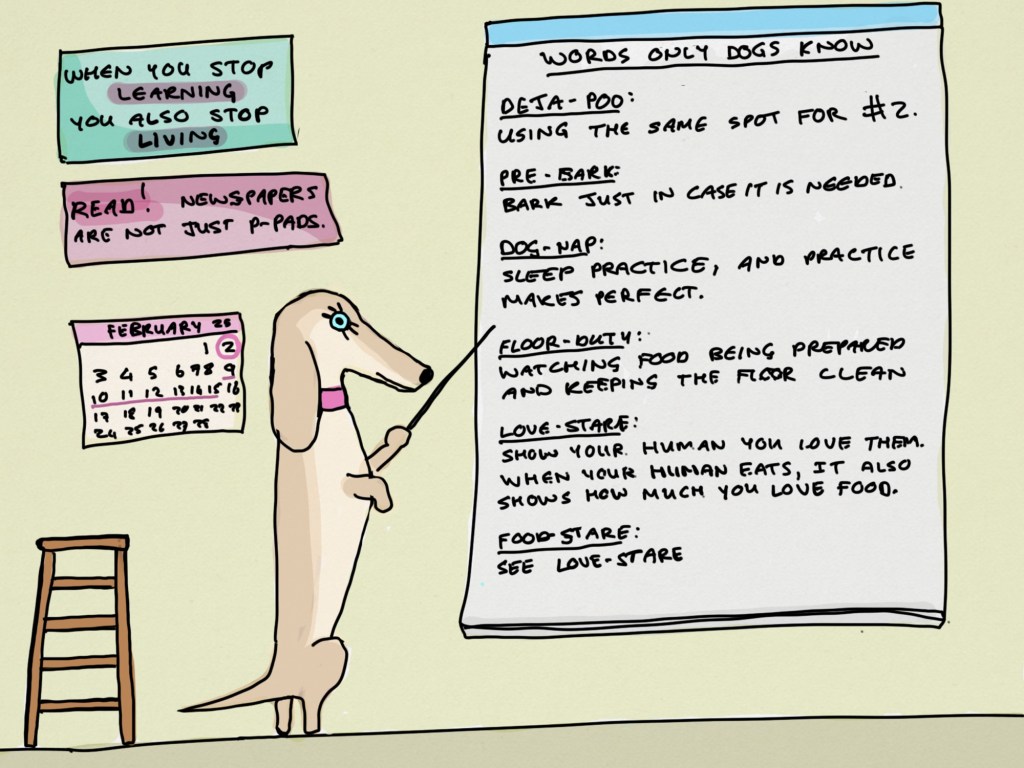 WHEN YOU STOP
LEARNING
YOU ALSO STOP
LIVING
READ! NEWSPAPERS
ARE NOT JUST P-PADS.
FEBRUARY 25
1 2
3 4 5 6 7 8 9
10 11 12 13 14 15 16
17 18 19 20 21 22 23
24 25 26 27 28
WORDS ONLY DOGS KNOW
DEJA-POO:
USING THE SAME SPOT FOR #2.
PRE-BARK:
BARK JUST IN CASE IT IS NEEDED.
DOG-NAP:
SLEEP PRACTICE, AND PRACTICE
MAKES PERFECT.
FLOOR-DUTY:
WATCHING FOOD BEING PREPARED
AND KEEPING THE FLOOR CLEAN
LOVE-STARE:
SHOW YOUR HUMAN YOU LOVE THEM.
WHEN YOUR HUMAN EATS, IT ALSO
SHOWS HOW MUCH YOU LOVE FOOD.
FOOD-STARE:
SEE LOVE-STARE